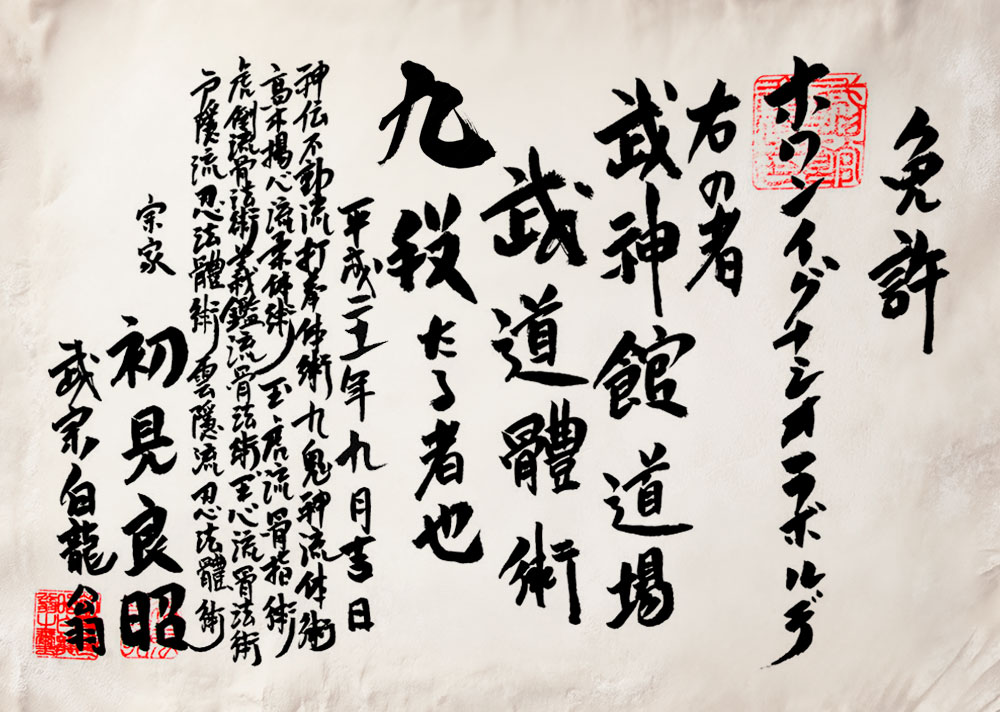 免許
ホワンイグナシオラボルデ
右の者
武神館道場
武道體術
九段たる者也
平成二十一年九月吉日
神伝不動流打拳体術九鬼神流体術
高木揚心流柔体術玉虎流骨指術
虎倒流骨法術義鑑流骨法術玉心流骨法術
戸隠流忍法體術雲隠流忍法體術
宗家
初見良昭
武宗白龍翁